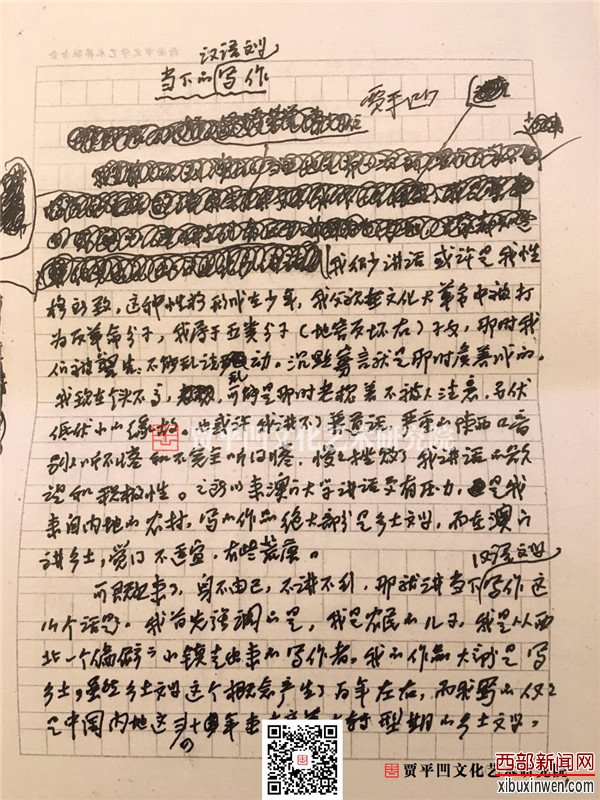 汉语文学
当下的写作
贾平凹
我很少讲话 或许是我性
格所致，这种性格形成在少年，我父亲在文化大革命中被打
为反革命分子，我属于五类分子（地富反坏右）子女，那时我
们被警告，不能乱说乱动。沉默寡言就是那时候养成的。
我现在个头不高，可能是那时老猫着不被人注意，易伏
低伏小的缘故。也或许我讲不了普通话，严重的陕西口音
别人听不懂和不完全听得懂，慢慢挫败了我讲话的欲
望和积极性。之所以来澳门大学讲话又有压力，是我
来自内地的农村，写的作品绝大部分是乡土文学，而在澳门
讲乡土，觉得不适宜，有些荒唐。
汉语文学
可既然来了，身不由己，不讲不行，那就讲当下写作这
个话题。我首先强调的是，我是农民的儿子，我是从西
北一个偏僻的小镇走出来的写作者。我的作品大部是写
乡土，虽然乡土文学这个概念产生了百年左右，而我写的仅仅
是中国内地这三四十年来大变革大转型期的乡土文学。
贾平凹文化艺术研究院
贾平凹文化艺术研究院
西部新闻网
xibuxinwen.com